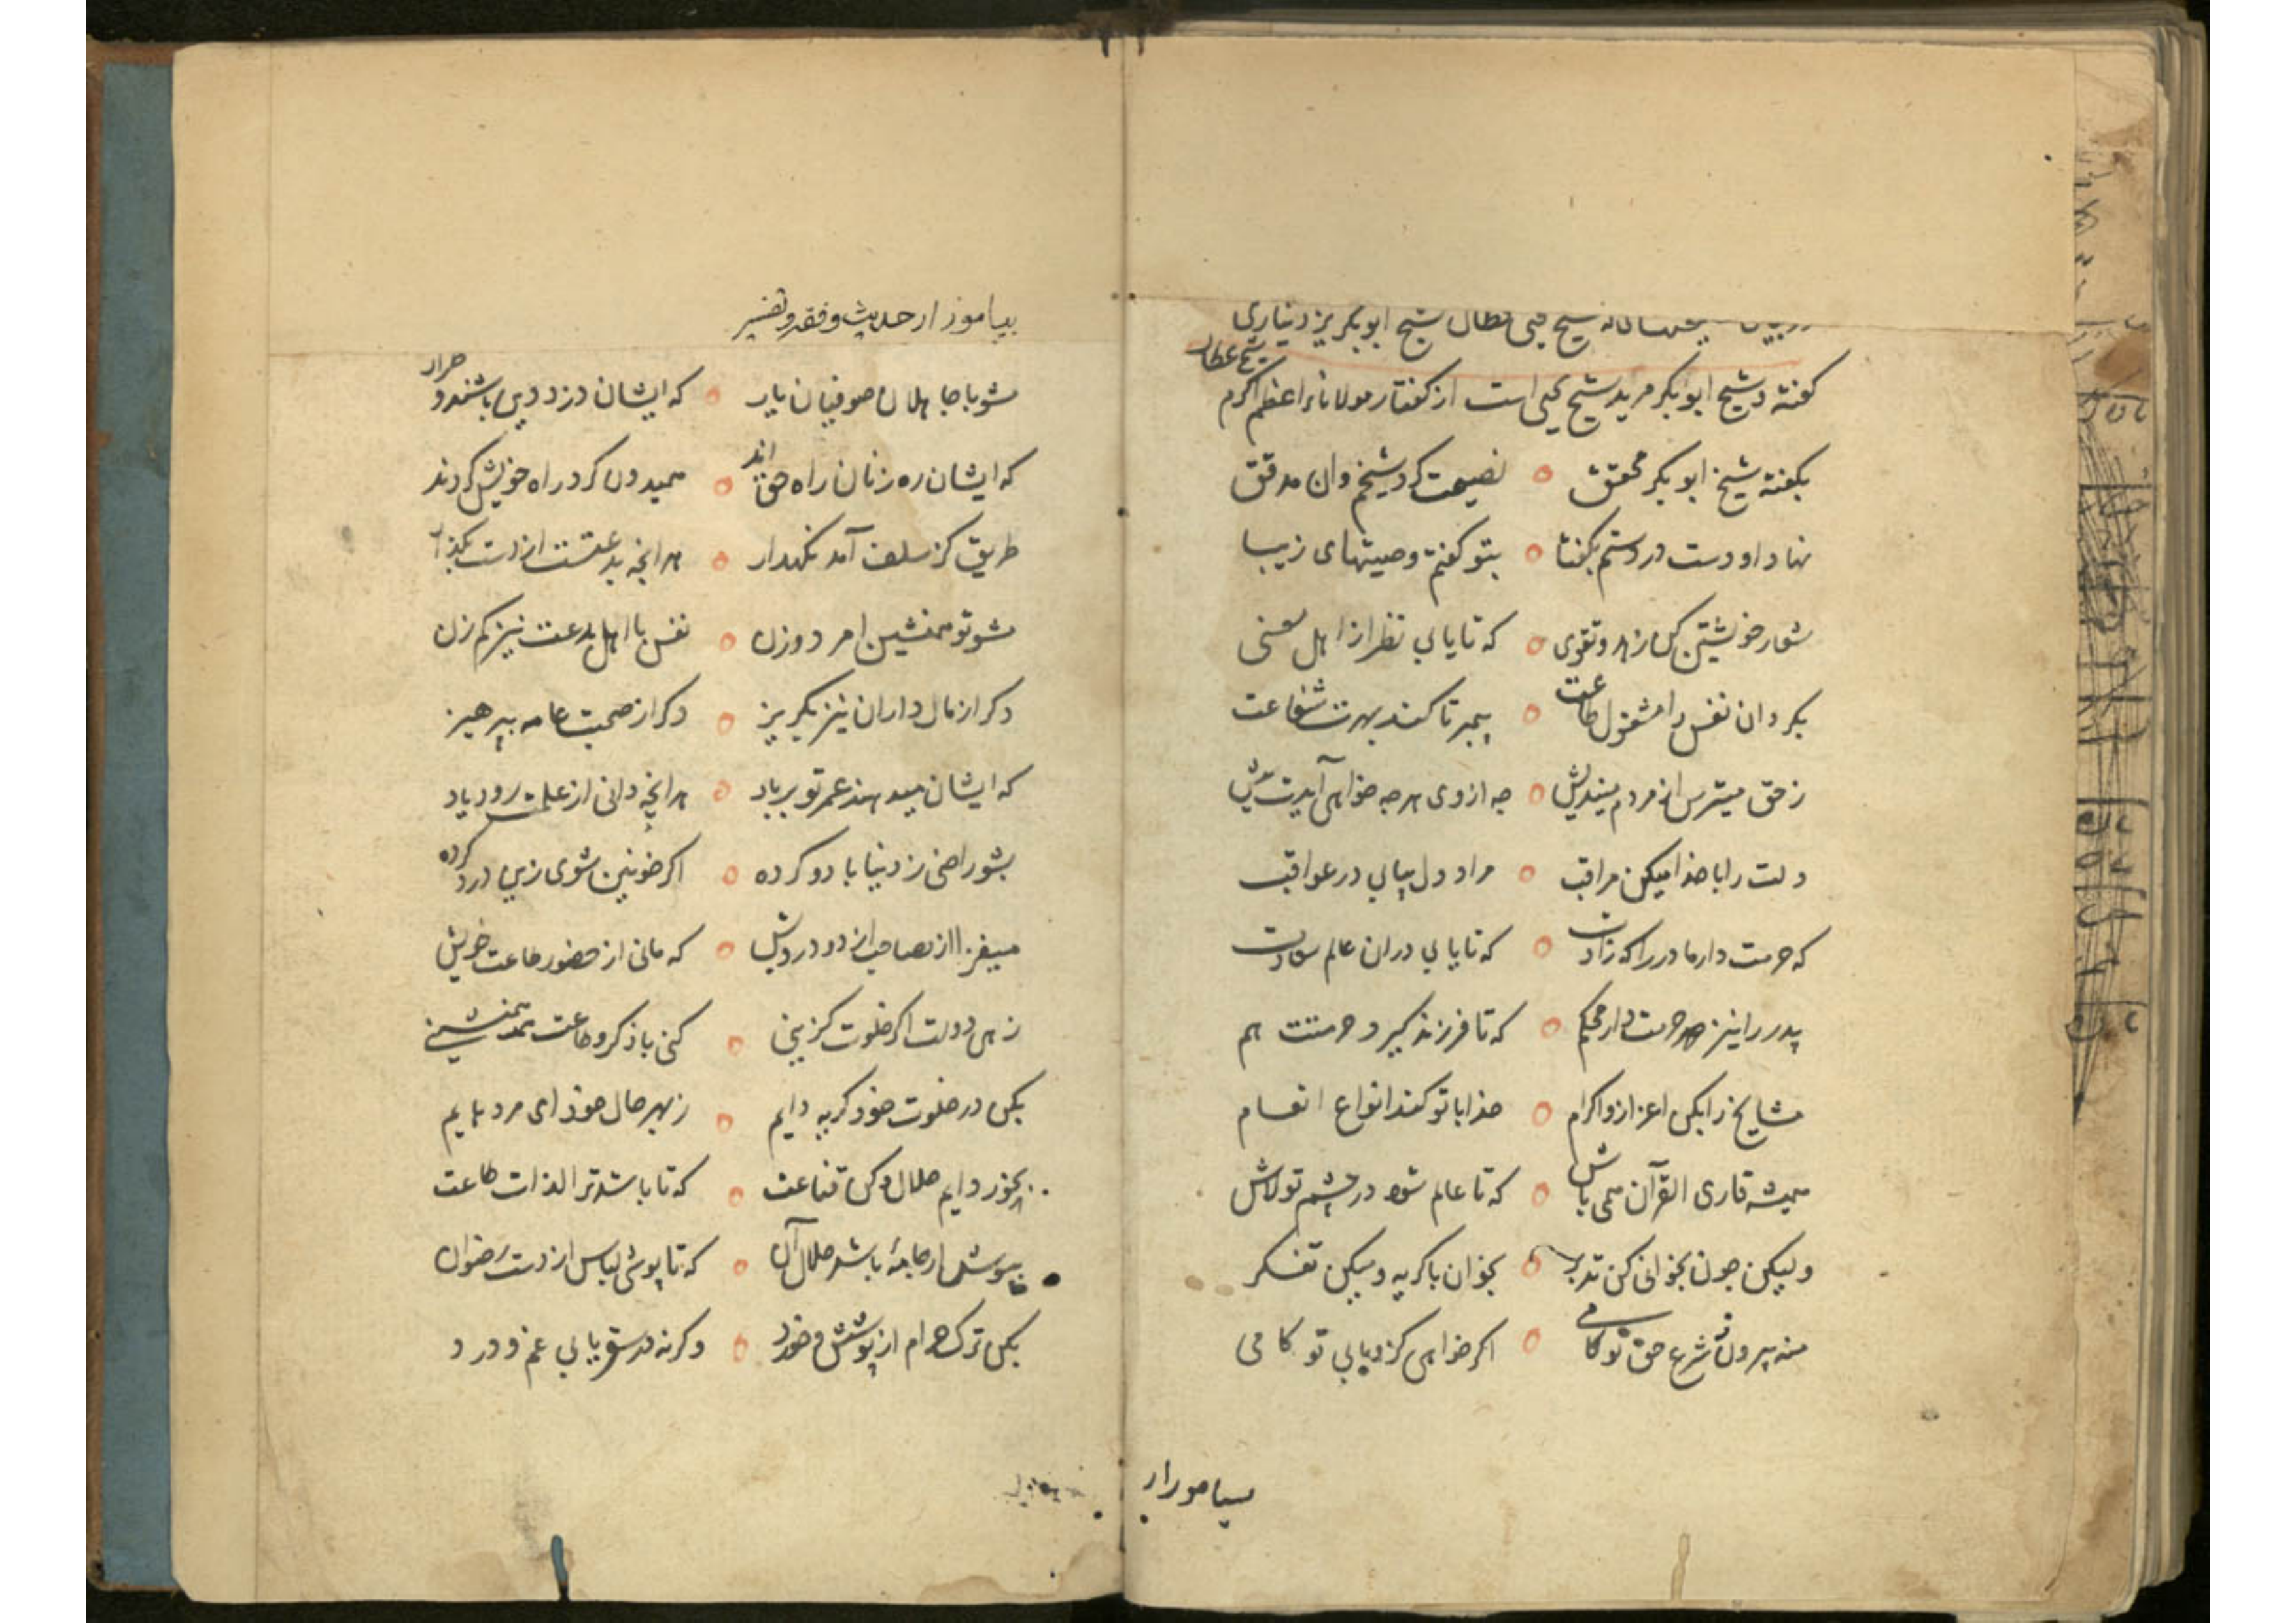 شیخ یحیی شیخ ابوبکر یزدیناری
شیخ عطار
کفته و شیخ ابوبکر مرید شیخ یحیی است از کفتار مولاناء اعظم اکرم
بکفته شیخ ابوبکر محقق نصیحت کرد شیخم وان مدقق
نهاد او دست در دستم بکفتا بتو کفتم وصیتهای زیبا
شعار خویشتن کن زهد و تقوی که تا یابی نظر از اهل معنی
بکردان نفس را مشغول طاعت پیمبر تا کند بهرت شفاعت
ز حق میترس از مردم میندیش چه ازوی هرچه خواهی آیدت پیش
دلت را با خدا میکن مراقب مراد دل بیابی در عواقب
که حرمت دار مادر را که زادت که تا یابی دران عالم سعادت
پدر را نیز هم حرمت دار محکم که تا فرزند کیرد حرمتت هم
مشایخ را بکن اعزاز و اکرام خدا با تو کند انواع انعام
همیشه قاری القرآن همی باش که تا عالم شود در چشم تو لاش
ولیکن چون بخوانی کن تدبر بخوان با کریه و میکن تفکر
منه بیرون ز شرع حق تو کامی اکر خواهی کزو یابی تو کامی
بیاموز از
بیاموز از حدیث و فقه و تفسیر
مشو با جاهلان صوفیان یار که ایشان دزد دین باشند و
که ایشان ره زنان راه حق اند کردند
طریق کز سلف آمد نکهدار هر انچه بدعتست از دست بکذار
مشو تو همنشین امرد و زن نفس با اهل بدعت نیز کم زن
دکر از مال داران نیز بکریز دکر از صحبت عامه بپرهیز
که ایشان میدهند عمر تو بر باد هر انچه دانی از علمت رود یاد
بشو راضی ز دنیا با دو کرده اکر خونین شوی زین درد کرده
از دو درویش که مانی از حضور طاعت خویش
زهی دولت اکر خلوت کزینی کنی با ذکر و طاعت همنشینی
بکن در خلوت خود کریه دایم ز بهر حال خود ای مرد هایم
بخور دایم حلال و کن قناعت که تا باشد ترا لذات طاعت
بپوش از جامهٔ باشد حلال آن که تا پوشی لباس از دست رضوان
بکن ترک حرام از پوشش و خورد وکرنه یابی غم و درد